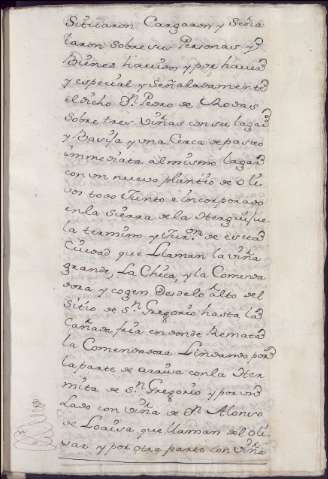 Situaron Cargaron y Seña
laron sobre sus Personas y
Bienes havidos y por haver
y especial y Señaladamente
el dicho Dn. Pedro de Chaves
Sobre tres Viñas con su lagar
y Basija y una Cerca de pasto
immediata al mismo lagar
con un nuevo plantio de Oli
vos todo Junto e incorporado
en la Sierra de la
termino y Jur.on de esta
Ciudad que Llaman la viña
grande, La Chica, y la Comenda
dora y cogen desde lo alto del
Sitio de Sn. Gregorio hasta la
Cañada fria en donde Remata
la Comendadora Lindando, por
la parte de arriva con la Her
mita de Sn. Gregorio y por un
Lado con viña de Dn. Alonso
de Loaisa que llaman del Oli
var y por otra parte con viña